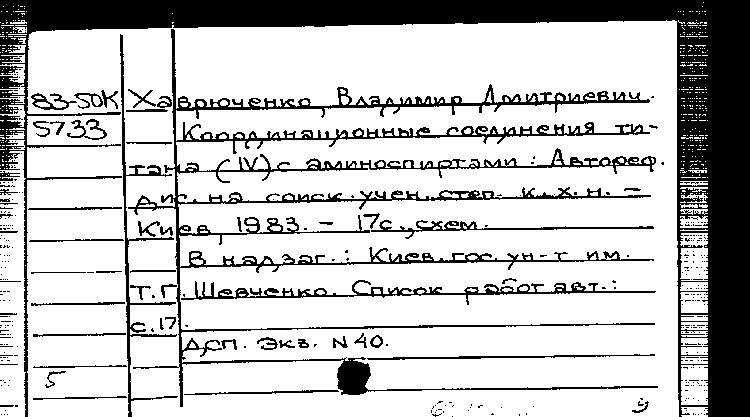 83-50К Хаврюченко, Владимир Дмитриевич.
5733 Координационные соединения ти-
тана (IV) с аминоспиртами : Автореф.
дис. на соиск. учен. степ. к.х.н. –
Киев, 1983. – 17с., схем.
В надзаг.: Киев. гос. ун-т им.
Т.Г. Шевченко. Список работ авт.:
с.17.
ДСП. Экз. N 40.
5